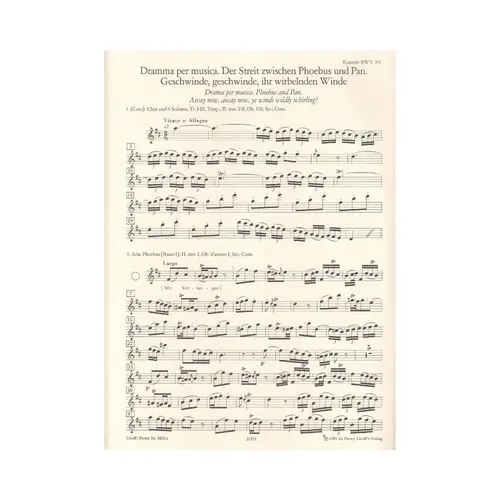 Kantate BWV 201
Dramma per musica. Der Streit zwischen Phoebus und Pan.
Geschwinde, geschwinde, ihr wirbelnden Winde
Drama per musica. Phoebus and Pan.
Away now, away now, ye winds wildly whirling!
1. (Coro): Chor und 6 Solisten, Tr. I-III, Timp.; Fl. trav. I/II, Ob. I/II, Str.; Cont.
Vivace e Allegro
5. Aria: Phoebus (Basso I), Fl. trav. I, Ob. d'amore I; Str.; Cont.
Largo
[Mit Ver- lan- gen]
Litolff / Peters Nr.
© 1985 by Henry Litolff's Verlag